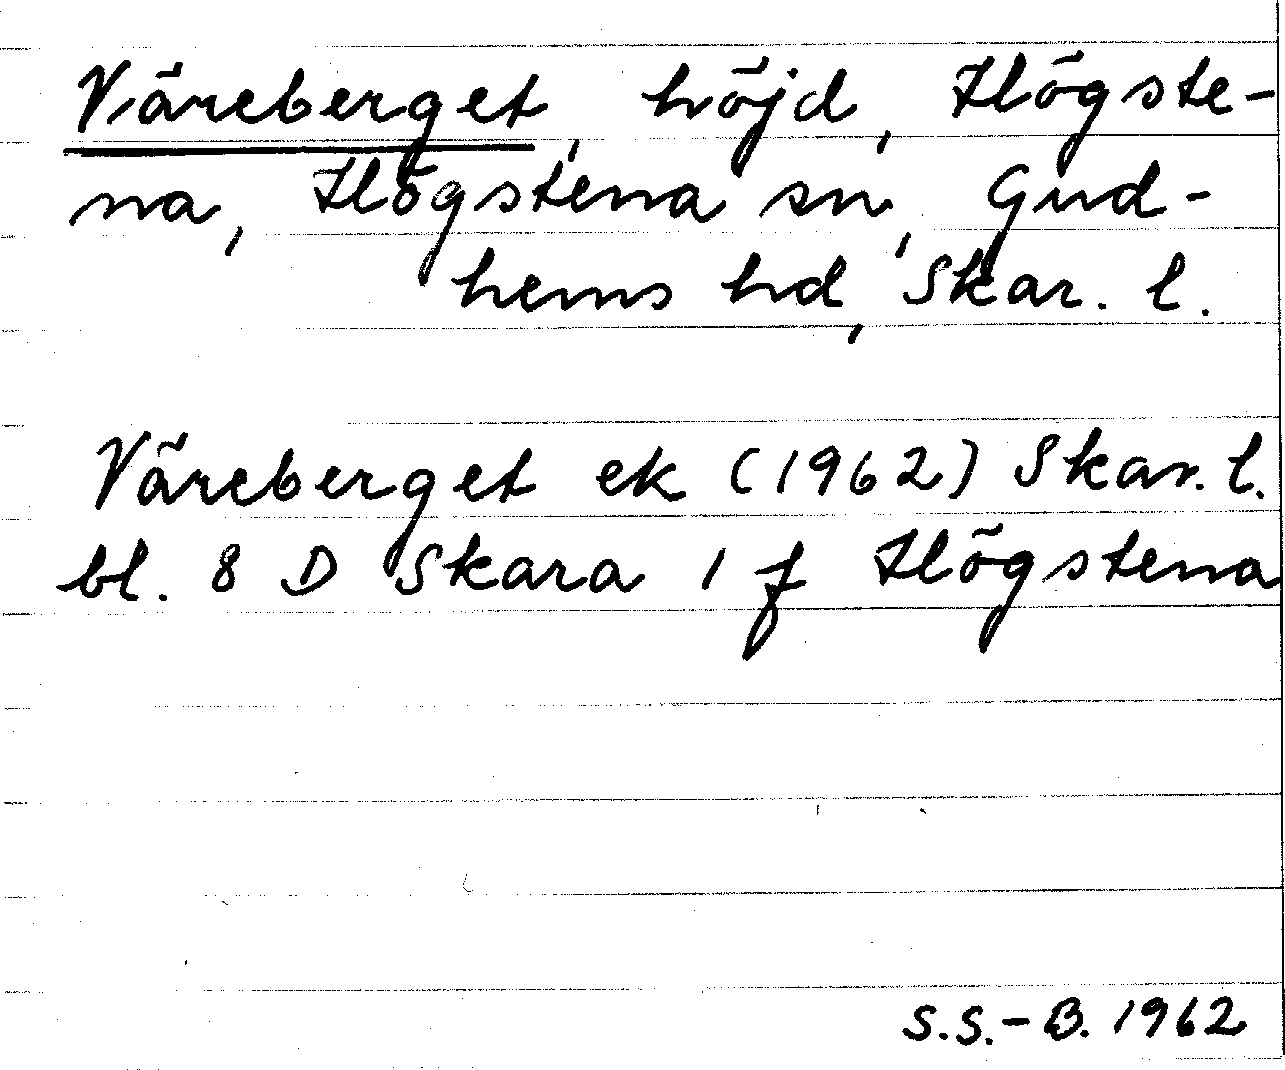 Väreberget, höjd, Högste-
na, Högstena sn, Gud-
hems hd, Skar. l.
Väreberget ek (1962) Skar. l.
bl. 8 D Skara 1 f Högstena
S.S.-B. 1962